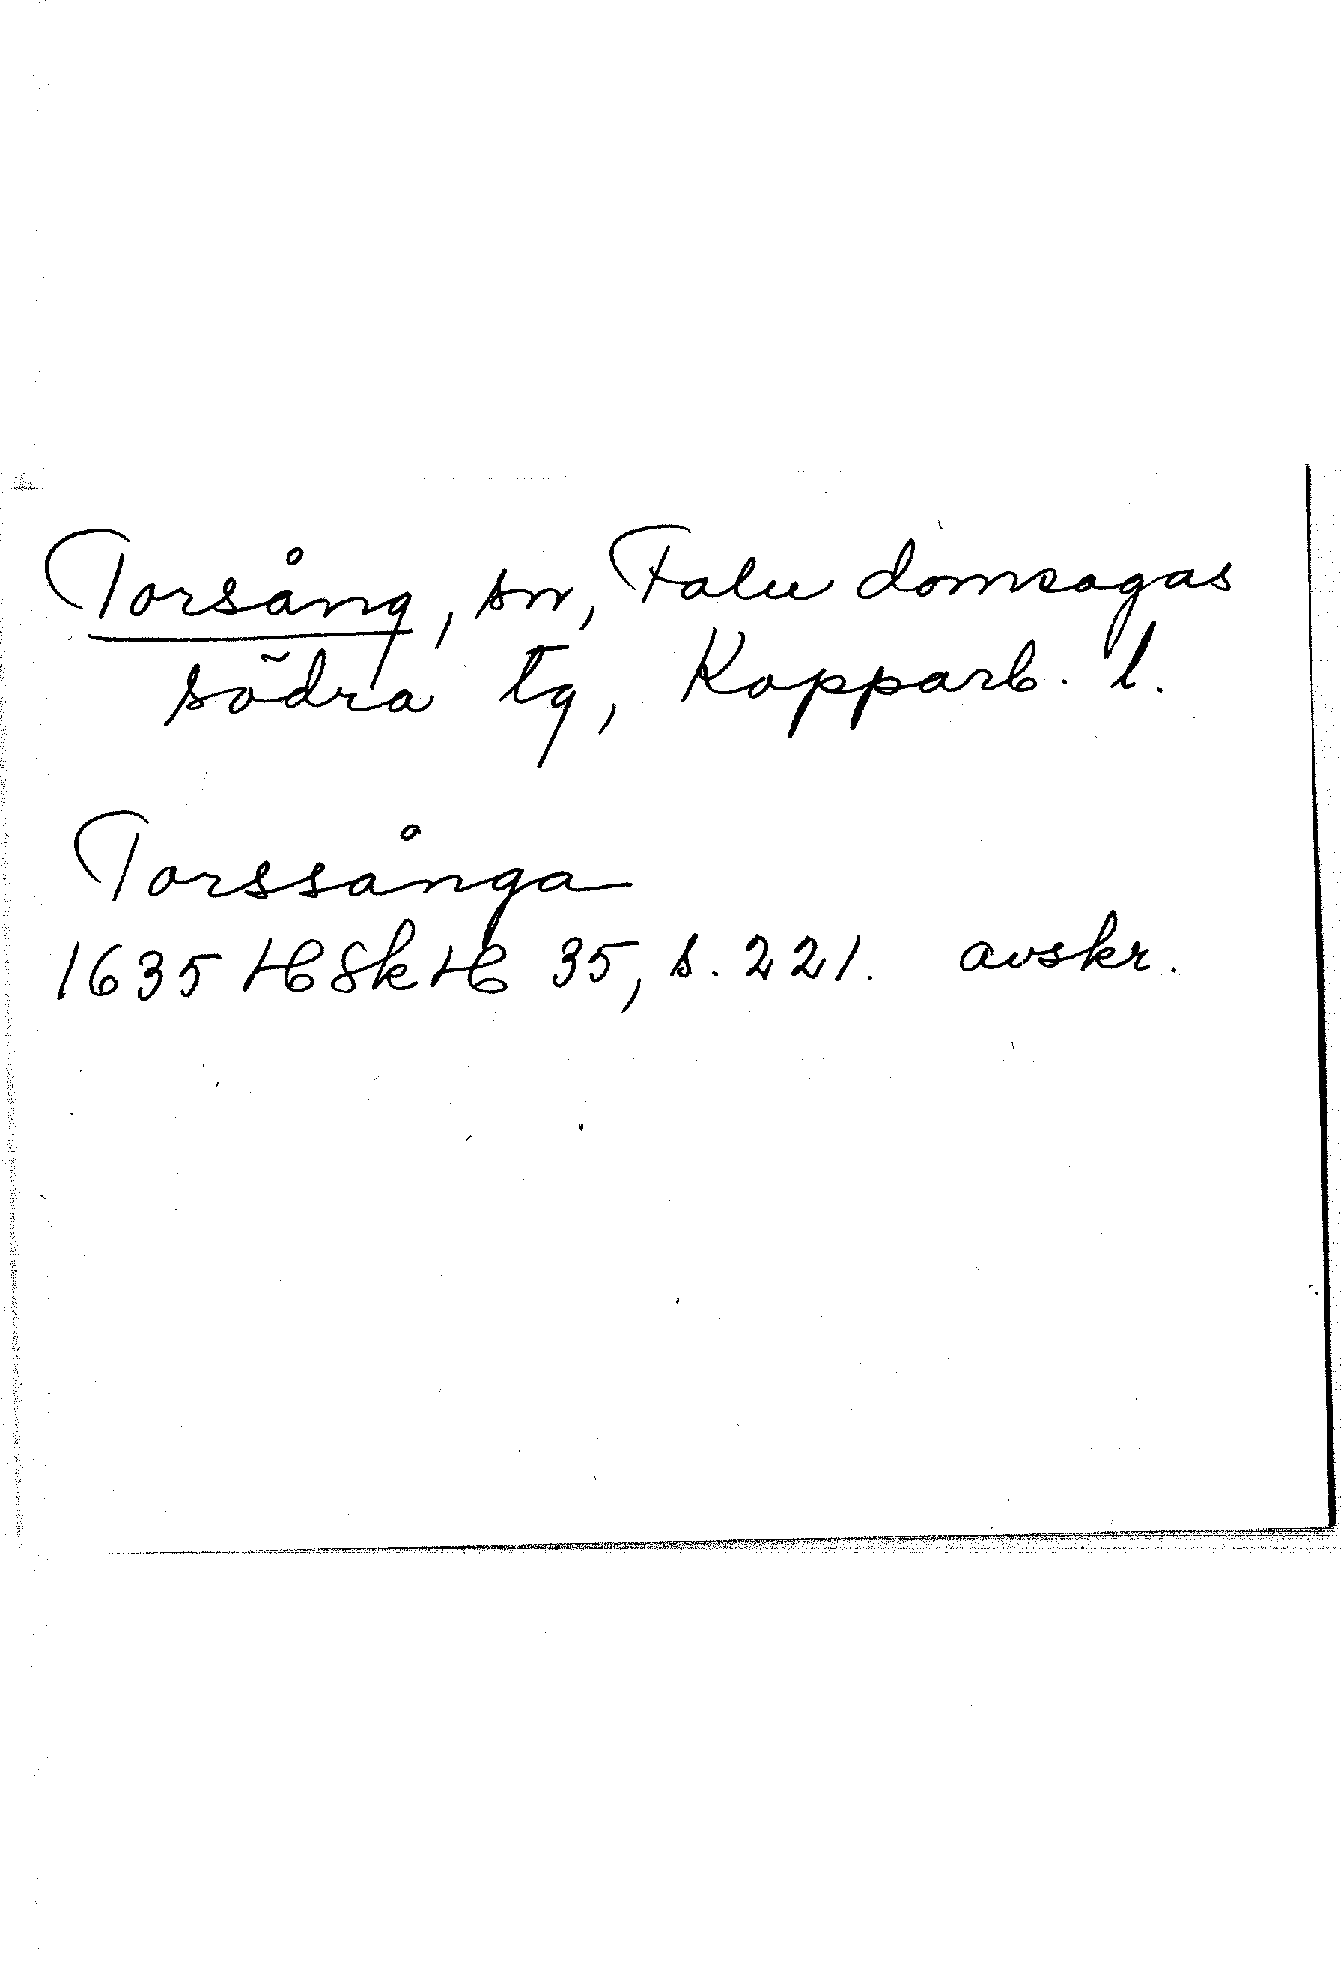 Torsång, sn, Falu domsagas
södra tg, Kopparb. l.
Torssånga
1635 HSkH 35, s. 221. avskr.